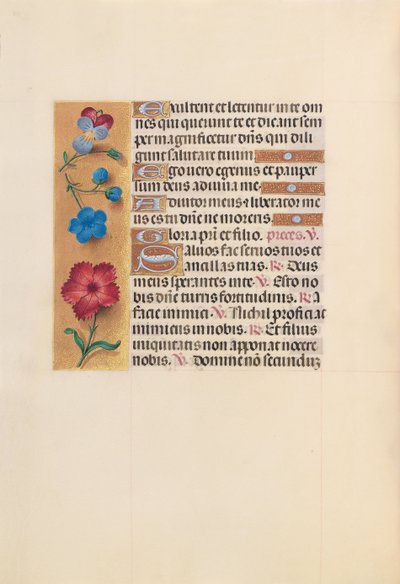 Exultent et letentur in te om
nes qui querunt te et dicant sem
per magnificetur dñs qui dili
gunt salutare tuum
Ego vero egenus et pauper
sum deus adiuva me
Adiutor meus et liberator me
us es tu dñe ne moreris.
Gloria pri et filio. preces. V.
Salvos fac servos tuos et
ancillas tuas. R. Deus
meus sperantes in te. V. Esto no
bis dñe turris fortitudinis. R. A
facie inimici. V. Nichil proficiat
inimicus in nobis. R. Et filius
iniquitatis non apponat nocere
nobis. V. Domine nõ secunduz